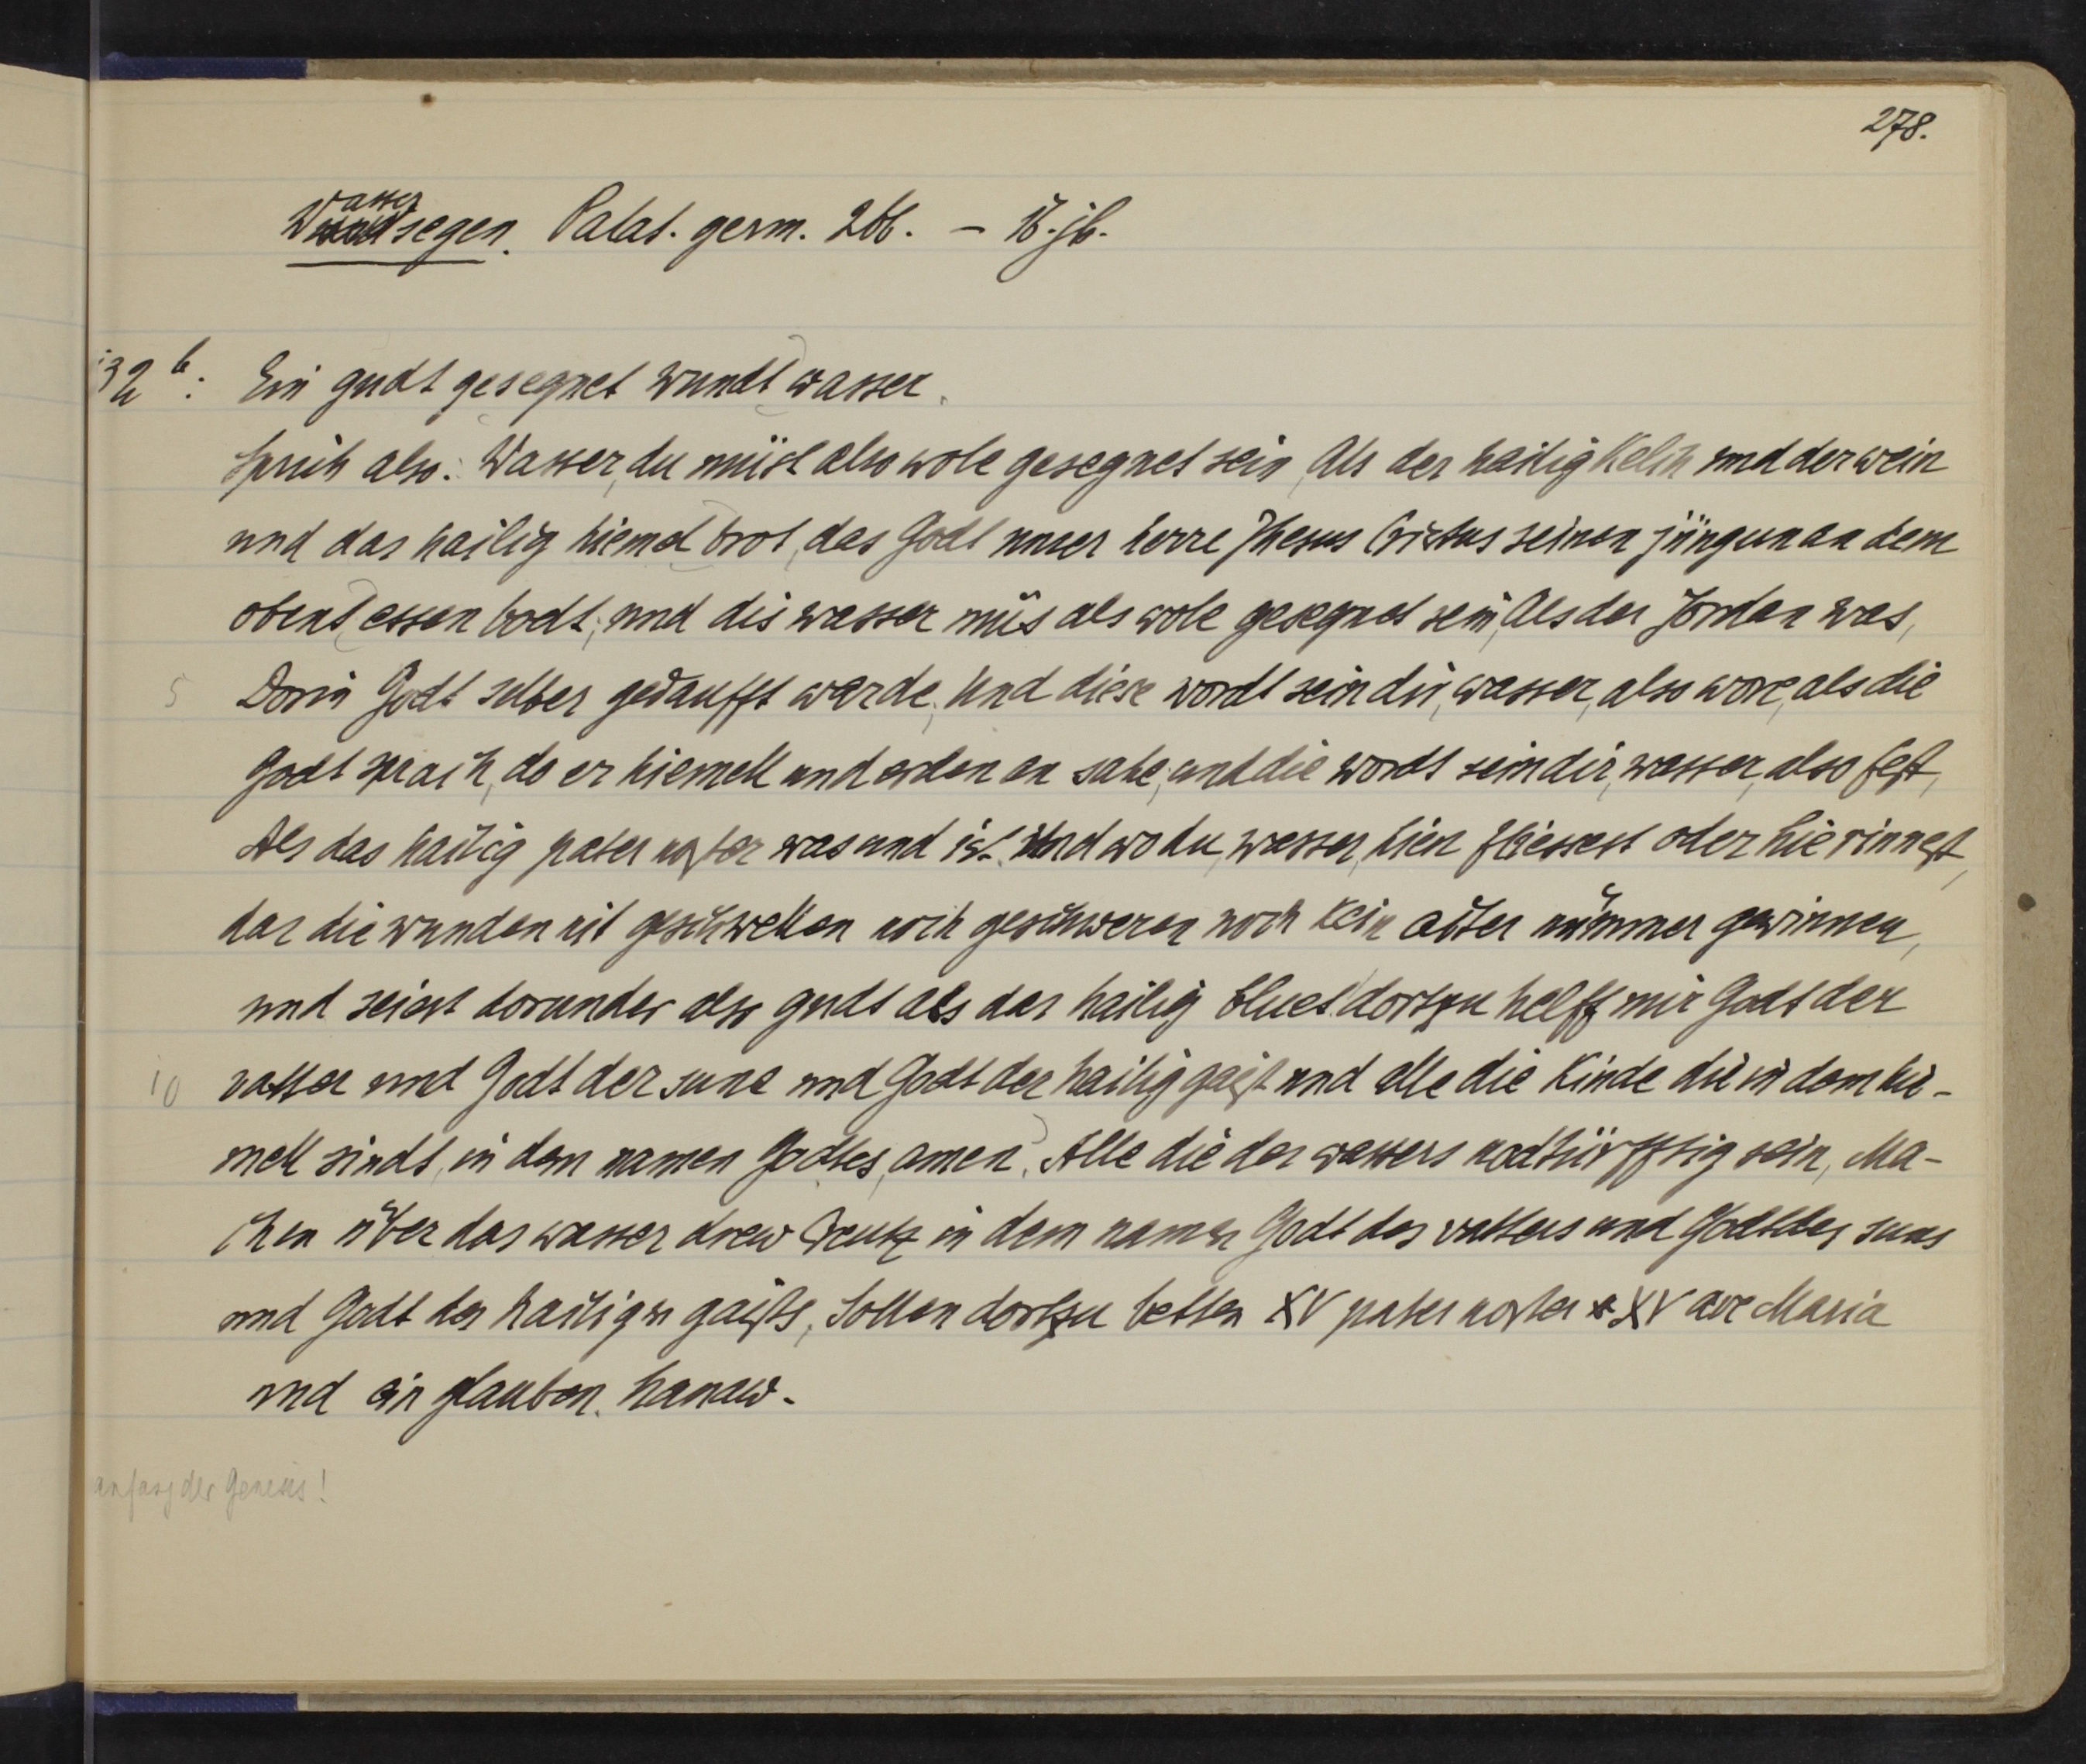 278.
Wassersegen. Palat. germ. 266. – 16. jh.
132 b: Ein gudt gesegnet wundt wasser.
Sprich also: Wasser, du müst also wole gesegnet sein, Als der heilig Kelch und der wein
und das hailig hiemel brot, das Godt unser herre Jhesus Cristus seinen jüngern an dem
obent essen bodt; und dis wasser müs als wole gesegnet sein, Als der Jordan was,
5 Dorin Godt selber gedaufft warde; Und diese wordt sein dir, wasser, also wore, als die
Godt sprach, do er hiemell und erden an sahe, und die wordt sein dir, wasser, also fest,
Als das hailig pater noster was und ist. Und wo du, wasser, hien fliessest oder hie rinnest,
das die wunden nit geschwellen noch geschweren noch kein aiter nümmer gewinnen,
und seiest dorunder also gudt als das hailig bluet. dortzu helff mir Godt der
10 vatter und Godt der sune und Godt der hailig gaist und alle die Kinde die in dem hie-
mell sindt, in dem namen Godtes, amen. Alle die des wassers nodtürfftig sein, Ma-
chen über das wasser drew Creutz in dem namen Godt des vatters und Godt des suns
und Godt des hailigen gaists, Sollen dortzu betten XV pater noster XV ave Maria
und ein glauben. hanaw.
anfang der Genesis!